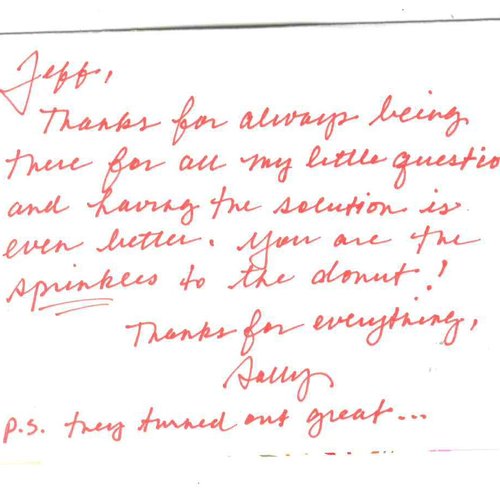 Jeff,
Thanks for always being
there for all my little questio
and having the solution is
even better. You are the
sprinkles to the donut!
Thanks for everything,
Sally
P.S. they turned out great...